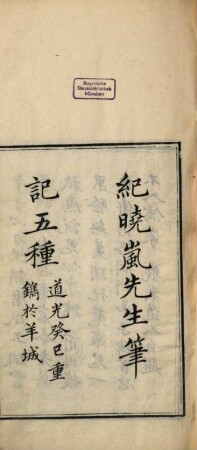 Bayerische
Staatsbibliothek
München
紀曉嵐先生筆
記五種
道光癸巳重
鐫於羊城